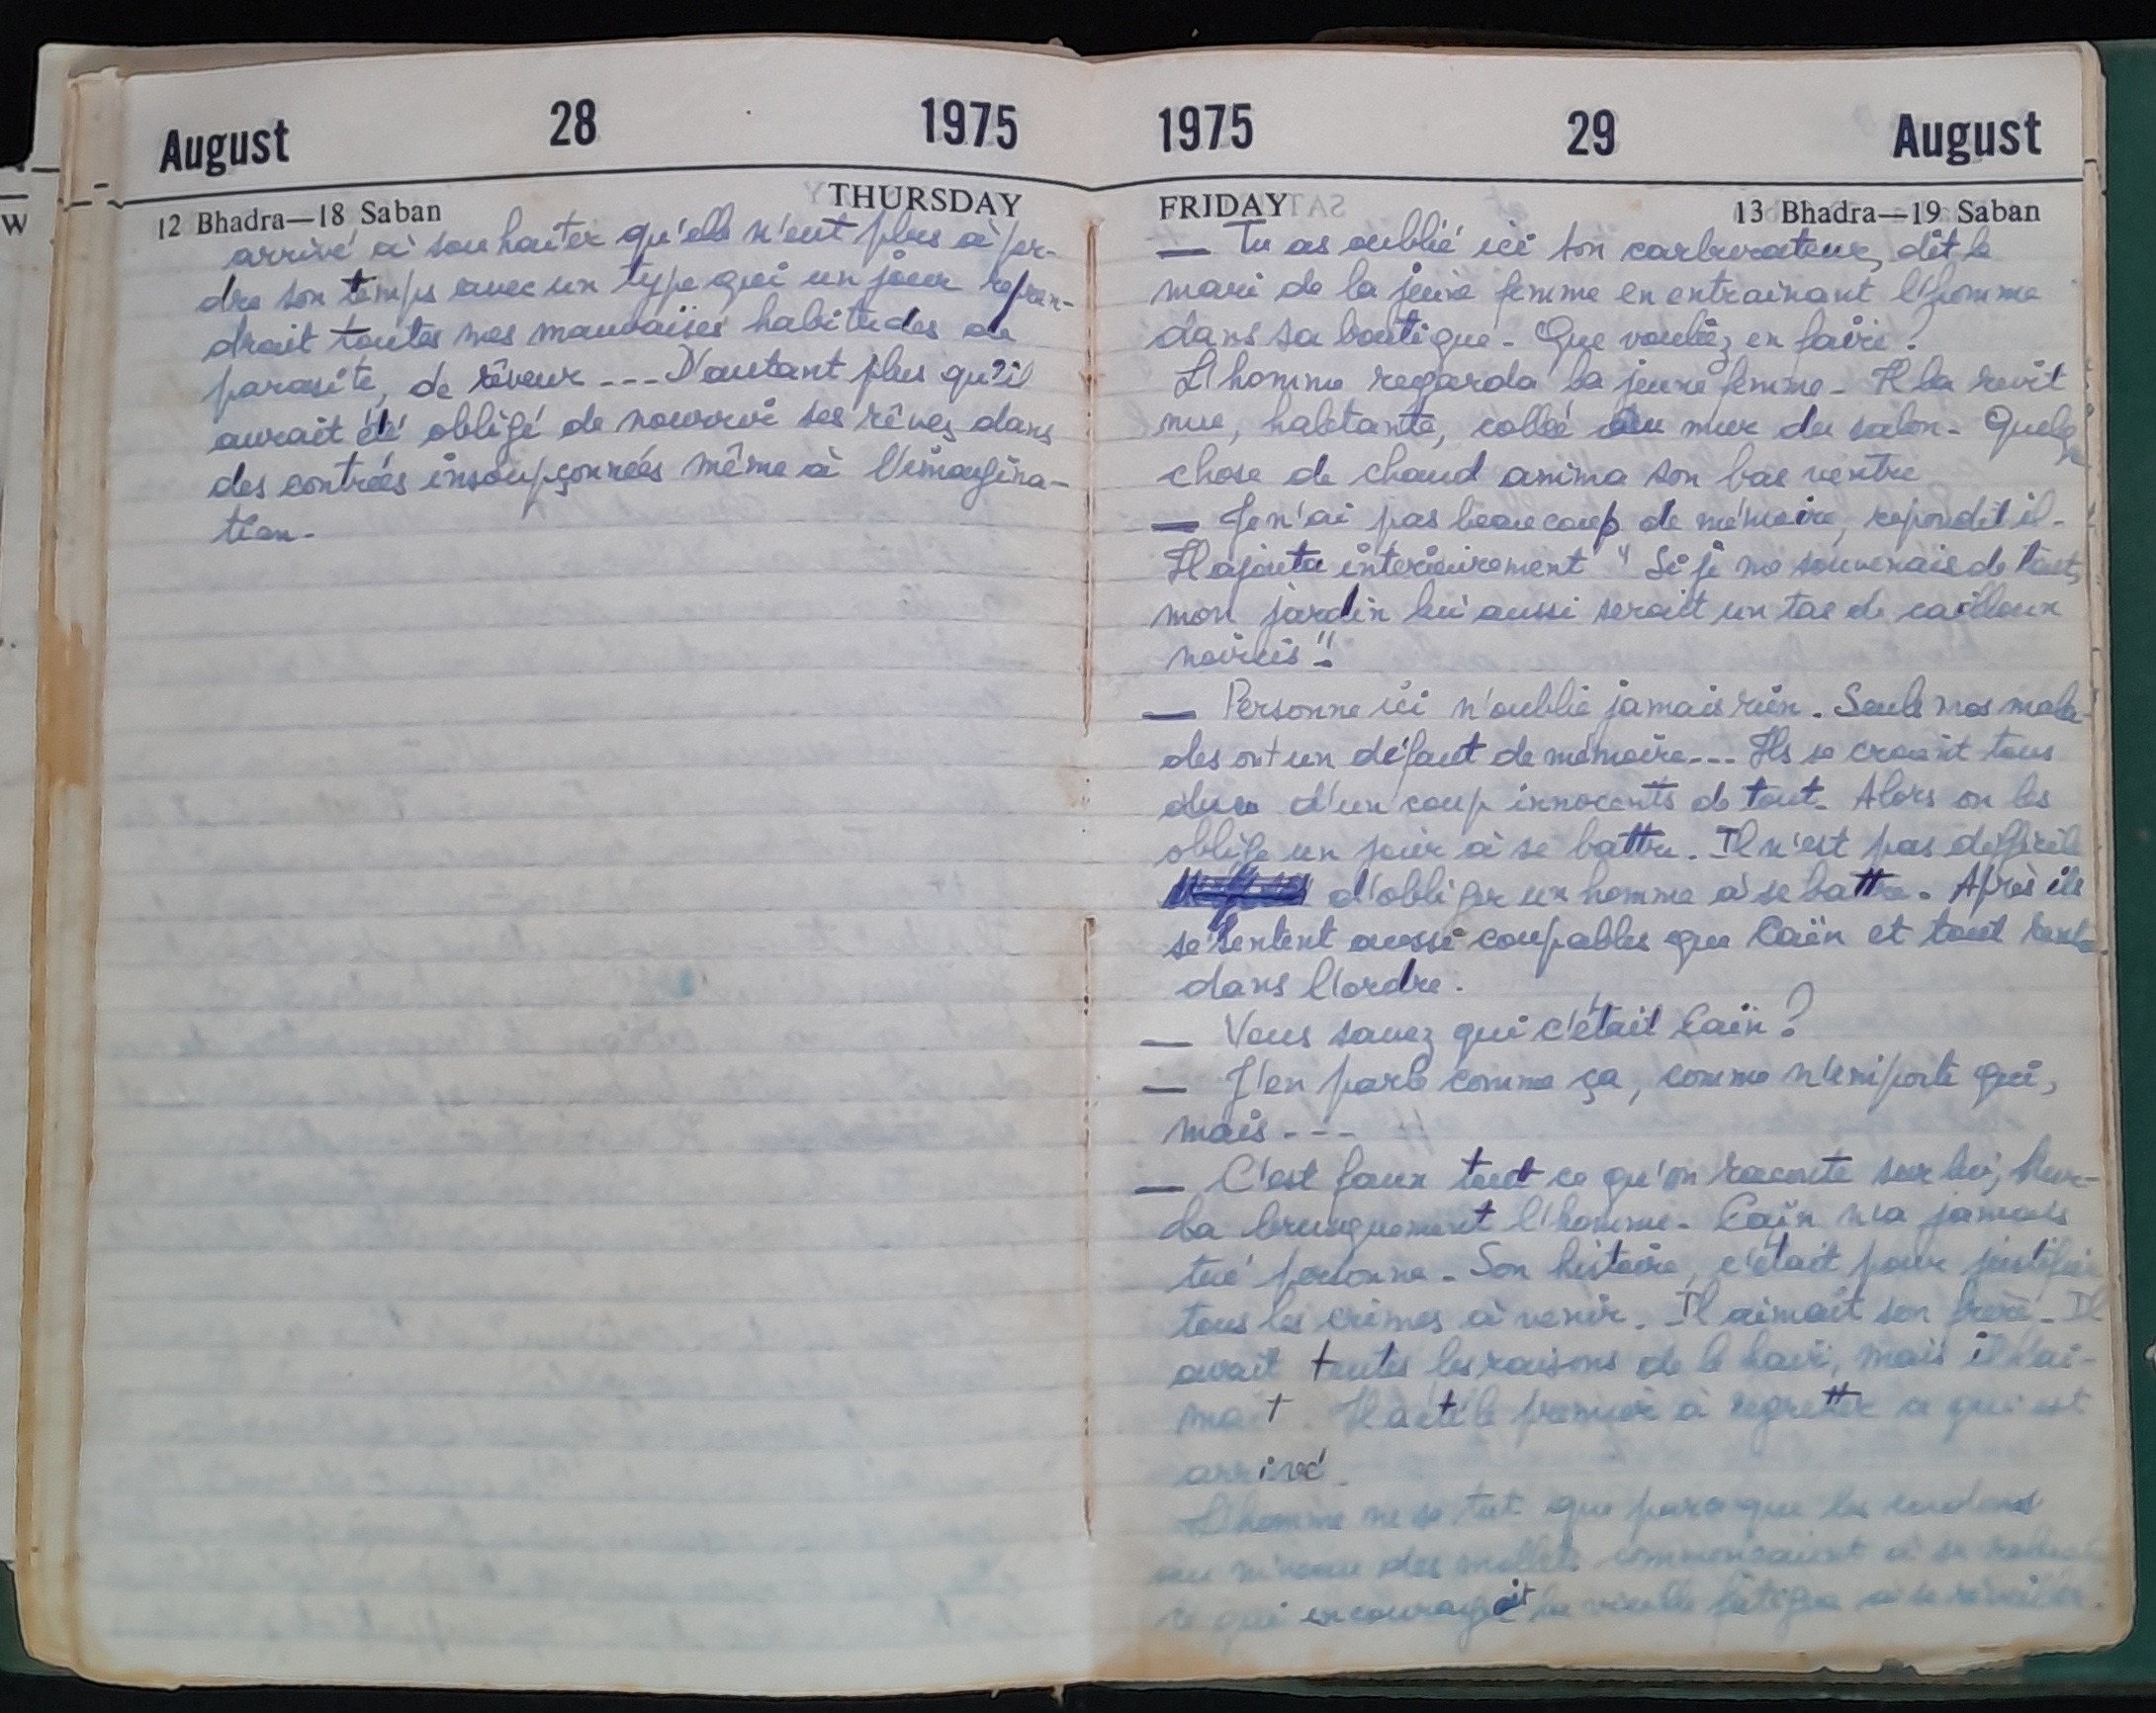 August 28 1975
12 Bhadra—18 Saban THURSDAY
arrivé à souhaiter qu'elle n'eut plus à per-
dre son temps avec un type qui un jour repren-
drait toutes mes mauvaises habitudes de
parasite, de rêveur --- D'autant plus qu'il
aurait été obligé de nourrir ses rêves dans
des contrées insoupçonnées même à l'imagina-
tion-
1975 29 August
FRIDAY 13 Bhadra—19 Saban
— Tu as oublié ici ton carburateur, dit le
mari de la jeune femme en entrainant l'homme
dans sa boutique- Que vouliez en faire?
L'homme regarda la jeune femme- Il la revit
nue, haletante, collée au mur du salon- Quelque
chose de chaud anima son bas ventre
— Je n'ai pas beaucoup de mémoire, repondit il-
Il ajouta intérieurement " Si je me souvenais de tout,
mon jardin lui aussi serait un tas de cailloux
noircis".
— Personne ici n'oublie jamais rien. Seuls nos mala-
des ont un défaut de mémoire--- Ils se croient tous
d'un coup innocents de tout- Alors on les
oblige un jour à se battre. Il n'est pas difficile
d'obliger un homme à se battre. Après ils
se sentent aussi coupables que Caïn et tout rentre
dans l'ordre.
— Vous savez qui c'était Caïn?
— J'en parle comme ça, comme n'importe qui,
mais---
— C'est faux tout ce qu'on raconte sur lui, hur-
la brusquement l'homme- Caïn n'a jamais
tué personne- Son histoire, c'était pour justifier
tous les crimes à venir. Il aimait son frère- Il
avait toutes les raisons de le haïr, mais il l'ai-
mait. Il a été le premier à regretter ce qui est
arrivé.
L'homme ne se tut que parce que les tendons
au niveau des mollets commençaient à se
ce qui encourageait la vieille fatigue à se réveiller.